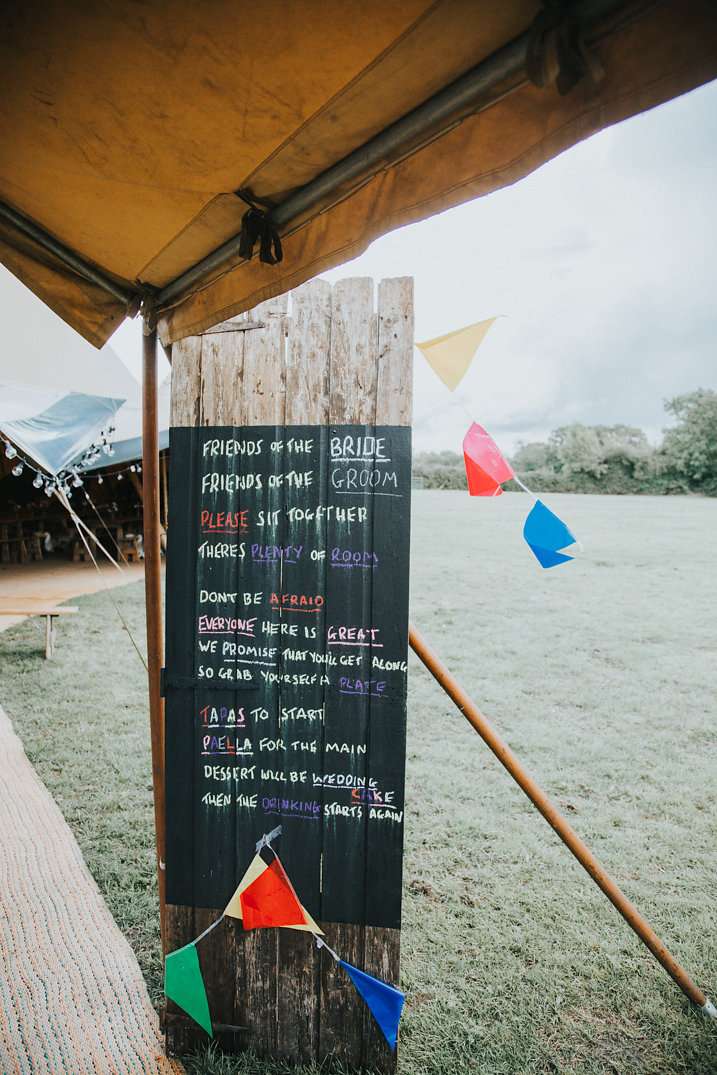 FRIENDS OF THE BRIDE
FRIENDS OF THE GROOM
PLEASE SIT TOGETHER
THERES PLENTY OF ROOM
DONT BE AFRAID
EVERYONE HERE IS GREAT
WE PROMISE THAT YOU'LL GET ALONG
SO GRAB YOURSELF A PLATE
TAPAS TO START
PAELLA FOR THE MAIN
DESSERT WILL BE WEDDING
CAKE
THEN THE DRINKING STARTS AGAIN